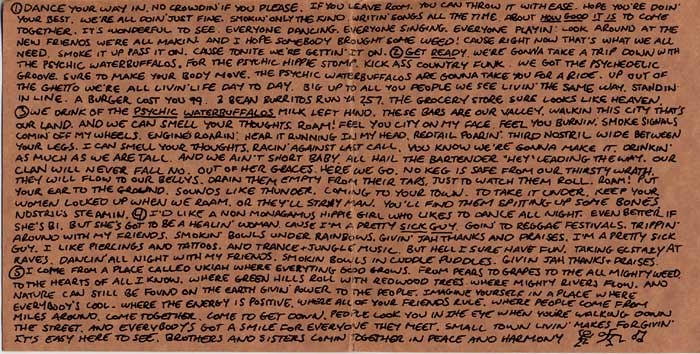 ① DANCE YOUR WAY IN. NO CROWDIN' IF YOU PLEASE. IF YOU LEAVE ROOM. YOU CAN THROW IT WITH EASE. HOPE YOU'RE DOIN'
YOUR BEST. WE'RE ALL DOIN' JUST FINE. SMOKIN' ONLY THE FIND. WRITIN' SONGS ALL THE TIME. ABOUT HOW GOOD IT IS TO COME
TOGETHER. IT'S WONDERFUL TO SEE. EVERYONE DANCING. EVERYONE SINGING. EVERYONE PLAYIN'. LOOK AROUND AT THE
NEW FRIENDS WE'RE ALL MAKIN' AND I HOPE SOMEBODY BROUGHT SOME WEED! CAUSE RIGHT NOW THAT'S WHAT WE ALL
NEED. SMOKE IT UP PASS IT ON. CAUSE TONITE WE'RE GETTIN' IT ON. ② GET READY. WE'RE GONYA TAKE A TRIP DOWN WITH
THE PSYCHIC WATERBUFFALOS. FOR THE PSYCHIC HIPPIE STOMP. KICK ASS COUNTRY FUNK. WE GOT THE PSYCHEDELIC
GROOVE. SURE TO MAKE YOUR BODY MOVE. THE PSYCHIC WATERBUFFALOS ARE GONNA TAKE YOU FOR A RIDE. UP OUT OF
THE GHETTO WE'RE ALL LIVIN' LIFE DAY TO DAY. BIG UP TO ALL YOU PEOPLE WE SEE LIVIN' THE SAME WAY. STANDIN'
IN LINE. A BURGER COST YOU 99. 3 BEAN BURRITOS RUN YA 257. THE GROCERY STORE SURE LOOKS LIKE HEAVEN.
③ WE DRINK OF THE PSYCHIC WATERBUFFALOS MILK LEFT HAND. THESE BARS ARE OUR VALLEY. WALKIN THIS CITY THAT'S
OUR LAND. AND WE CAN SMELL YOUR THOUGHTS. ROAM! FEEL YOU CITY ON MY FACE FEEL YOU BURNIN. SMOKE SIGNALS
COMIN' OFF MY WHEELS. ENGINE ROARIN'. HEAR IT RUNNING IN MY HEAD. REDTAIL POARIN'. THIRD NOSTRIL WIDE BETWEEN
YOUR LEGS. I CAN SMELL YOUR THOUGHTS. RACIN' AGAINST LAST CALL. YOU KNOW WE'RE GONNA MAKE IT. DRINKIN'
AS MUCH AS WE ARE TALL. AND WE AIN'T SHORT BABY. ALL HAIL THE BARTENDER "HEY" LEADING THE WAY. OUR
CLAN WILL NEVER FALL. NO. OUT OF HER GRACES. HERE WE GO. NO KEG IS SAFE FROM OUR THIRSTY WRATH.
THEY WILL FLOW TO OUR BELLY'S. DRAIN THEM EMPTY FROM THEIR TAPS, JUST TO WATCH THEM ROLL. ROAM! PUT
YOUR EAR TO THE GROUND. SOUNDS LIKE THUNDER. COMING TO YOUR TOWN. TO TAKE IT UNDER. KEEP YOUR
WOMEN LOCKED UP WHEN WE ROAM. OR THEY'LL STRAY MAN. YOU'LL FIND THEM SPITTING UP SOME BONES.
NOSTRILS STEAMIN. ④ I'D LIKE A NON MONAGAMUS HIPPIE GIRL WHO LIKES TO DANCE ALL NIGHT. EVEN BETTER IF
SHE'S BI. BUT SHE'S GOT TO BE A HEALIN' WOMAN. CAUSE I'M A PRETTY SICK GUY. GOIN' TO REGGAE FESTIVALS. TRIPPIN'
AROUND WITH MY FRIENDS. SMOKIN' BOWLS UNDER RAINBOWS. GIVIN' JAH THANKS AND PRAISES. I'M A PRETTY SICK
GUY. I LIKE PIERCINGS AND TATTOOS. AND TRANCE + JUNGLE MUSIC. BUT HELL I SURE HAVE FUN. TAKING ECSTACY AT
RAVES. DANCIN' ALL NIGHT WITH MY FRIENDS. SMOKIN BOWLS IN CUDDLE PUDDLES. GIVIN JAH THANKS + PRAISES.
⑤ I COME FROM A PLACE CALLED UKIAH WHERE EVERYTHING GOOD GROWS. FROM PEARS TO GRAPES TO THE ALL MIGHTY WEED.
TO THE HEARTS OF ALL I KNOW. WHERE GREEN HILLS ROLL WITH REDWOOD TREES WHERE MIGHTY RIVERS FLOW. AND
NATURE CAN STILL BE FOUND ON THE EARTH GIVIN' POWER TO THE PEOPLE. IMAGINE YOURSELF IN A PLACE WHERE
EVERYBODY'S COOL. WHERE THE ENERGY IS POSITIVE. WHERE ALL OF YOUR FRIENDS RULE. WHERE PEOPLE COME FROM
MILES AROUND. COME TOGETHER. COME TO GET DOWN. PEOPLE LOOK YOU IN THE EYE WHEN YOU'RE WALKING DOWN
THE STREET. AND EVERYBODY'S GOT A SMILE FOR EVERYONE THEY MEET. SMALL TOWN LIVIN' MAKES FORGIVIN'
IT'S EASY HERE TO SEE. BROTHERS AND SISTERS COMIN TOGETHER IN PEACE AND HARMONY